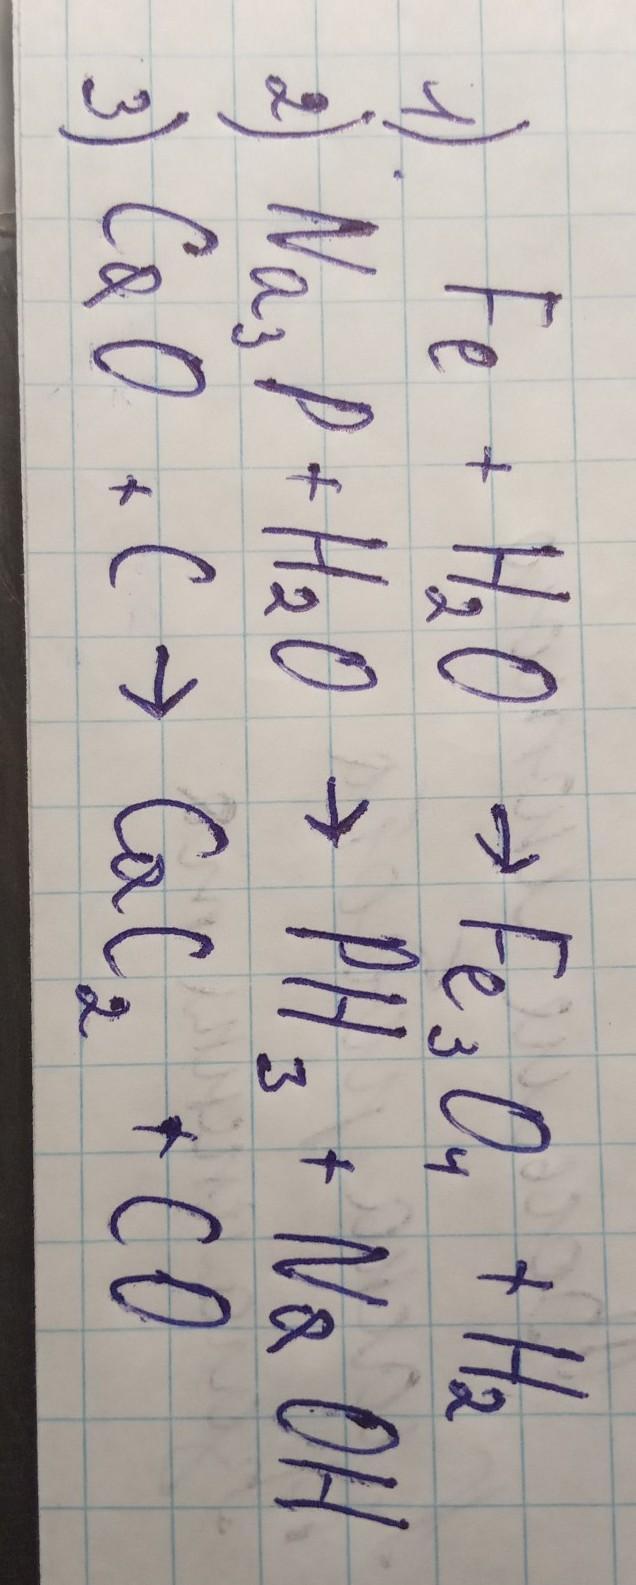 1) Fe + H₂O → Fe₃O₄ + H₂
2) Na₃P + H₂O → PH₃ + NaOH
3) CaO + C → CaC₂ + CO